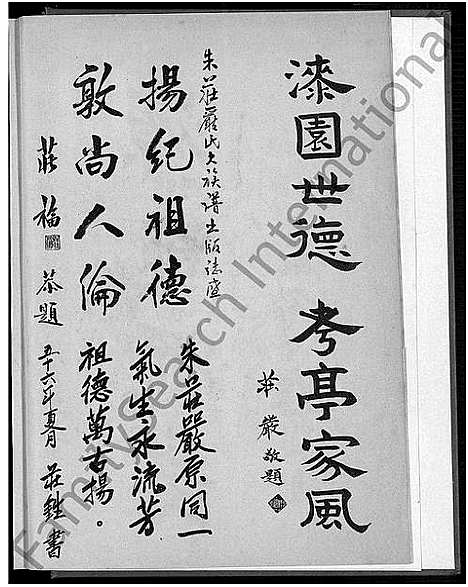 漆園世德 考亭家風
莊嚴敬題
朱莊嚴氏大族譜出版誌盛
揚紀祖德
敦尚人倫
莊福 恭題
朱莊嚴原同一
氣生永流芳
祖德萬古揚。
五十六年夏月 莊銼書
FamilySearch International